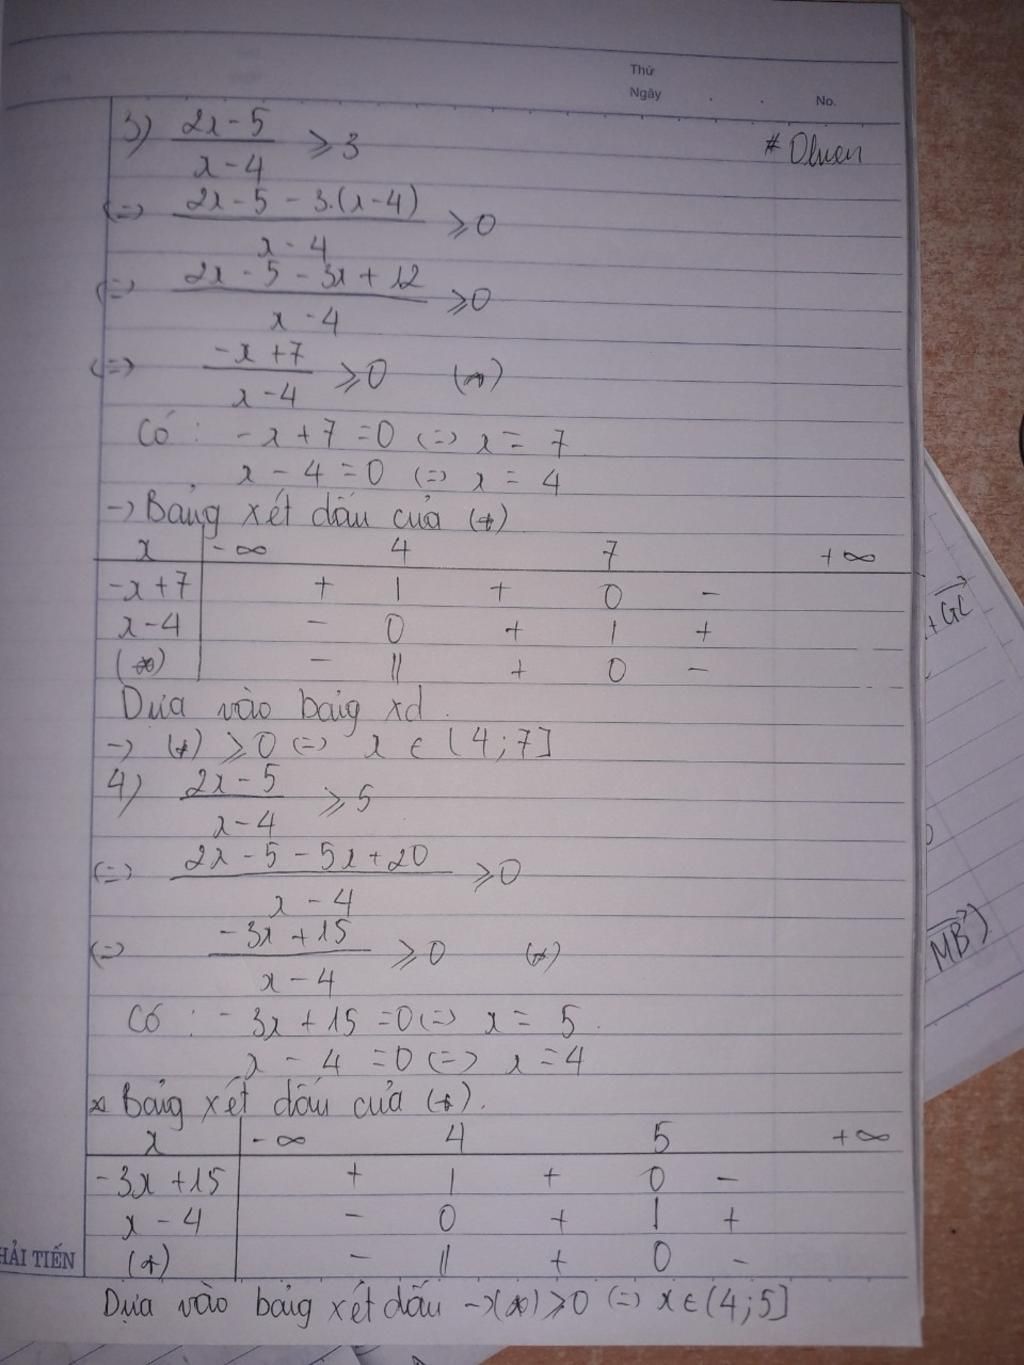 Thứ
Ngày . . No.
# Dluen
3) (2x - 5)/(x - 4) ⩾ 3
(=) (2x - 5 - 3.(x - 4))/(x - 4) ⩾ 0
(=) (2x - 5 - 3x + 12)/(x - 4) ⩾ 0
(=) (-x + 7)/(x - 4) ⩾ 0 (*)
Có : -x + 7 = 0 (=) x = 7
x - 4 = 0 (=) x = 4
-> Bảng xét dấu của (*)
x -∞ 4 7 +∞
-x + 7 + | + 0 -
x - 4 - 0 + | +
(*) - || + 0 -
Dựa vào bảng xd.
-> (*) ⩾ 0 (=) x ∈ (4 ; 7]
4) (2x - 5)/(x - 4) ⩾ 5
(=) (2x - 5 - 5x + 20)/(x - 4) ⩾ 0
(=) (-3x + 15)/(x - 4) ⩾ 0 (*)
Có : -3x + 15 = 0 (=) x = 5.
x - 4 = 0 (=) x = 4
* Bảng xét dấu của (*).
x -∞ 4 5 +∞
-3x + 15 + | + 0 -
x - 4 - 0 + | +
(*) - || + 0 -
Dựa vào bảng xét dấu -> (*) ⩾ 0 (=) x ∈ (4 ; 5]
HẢI TIẾN
+ GC
MB)